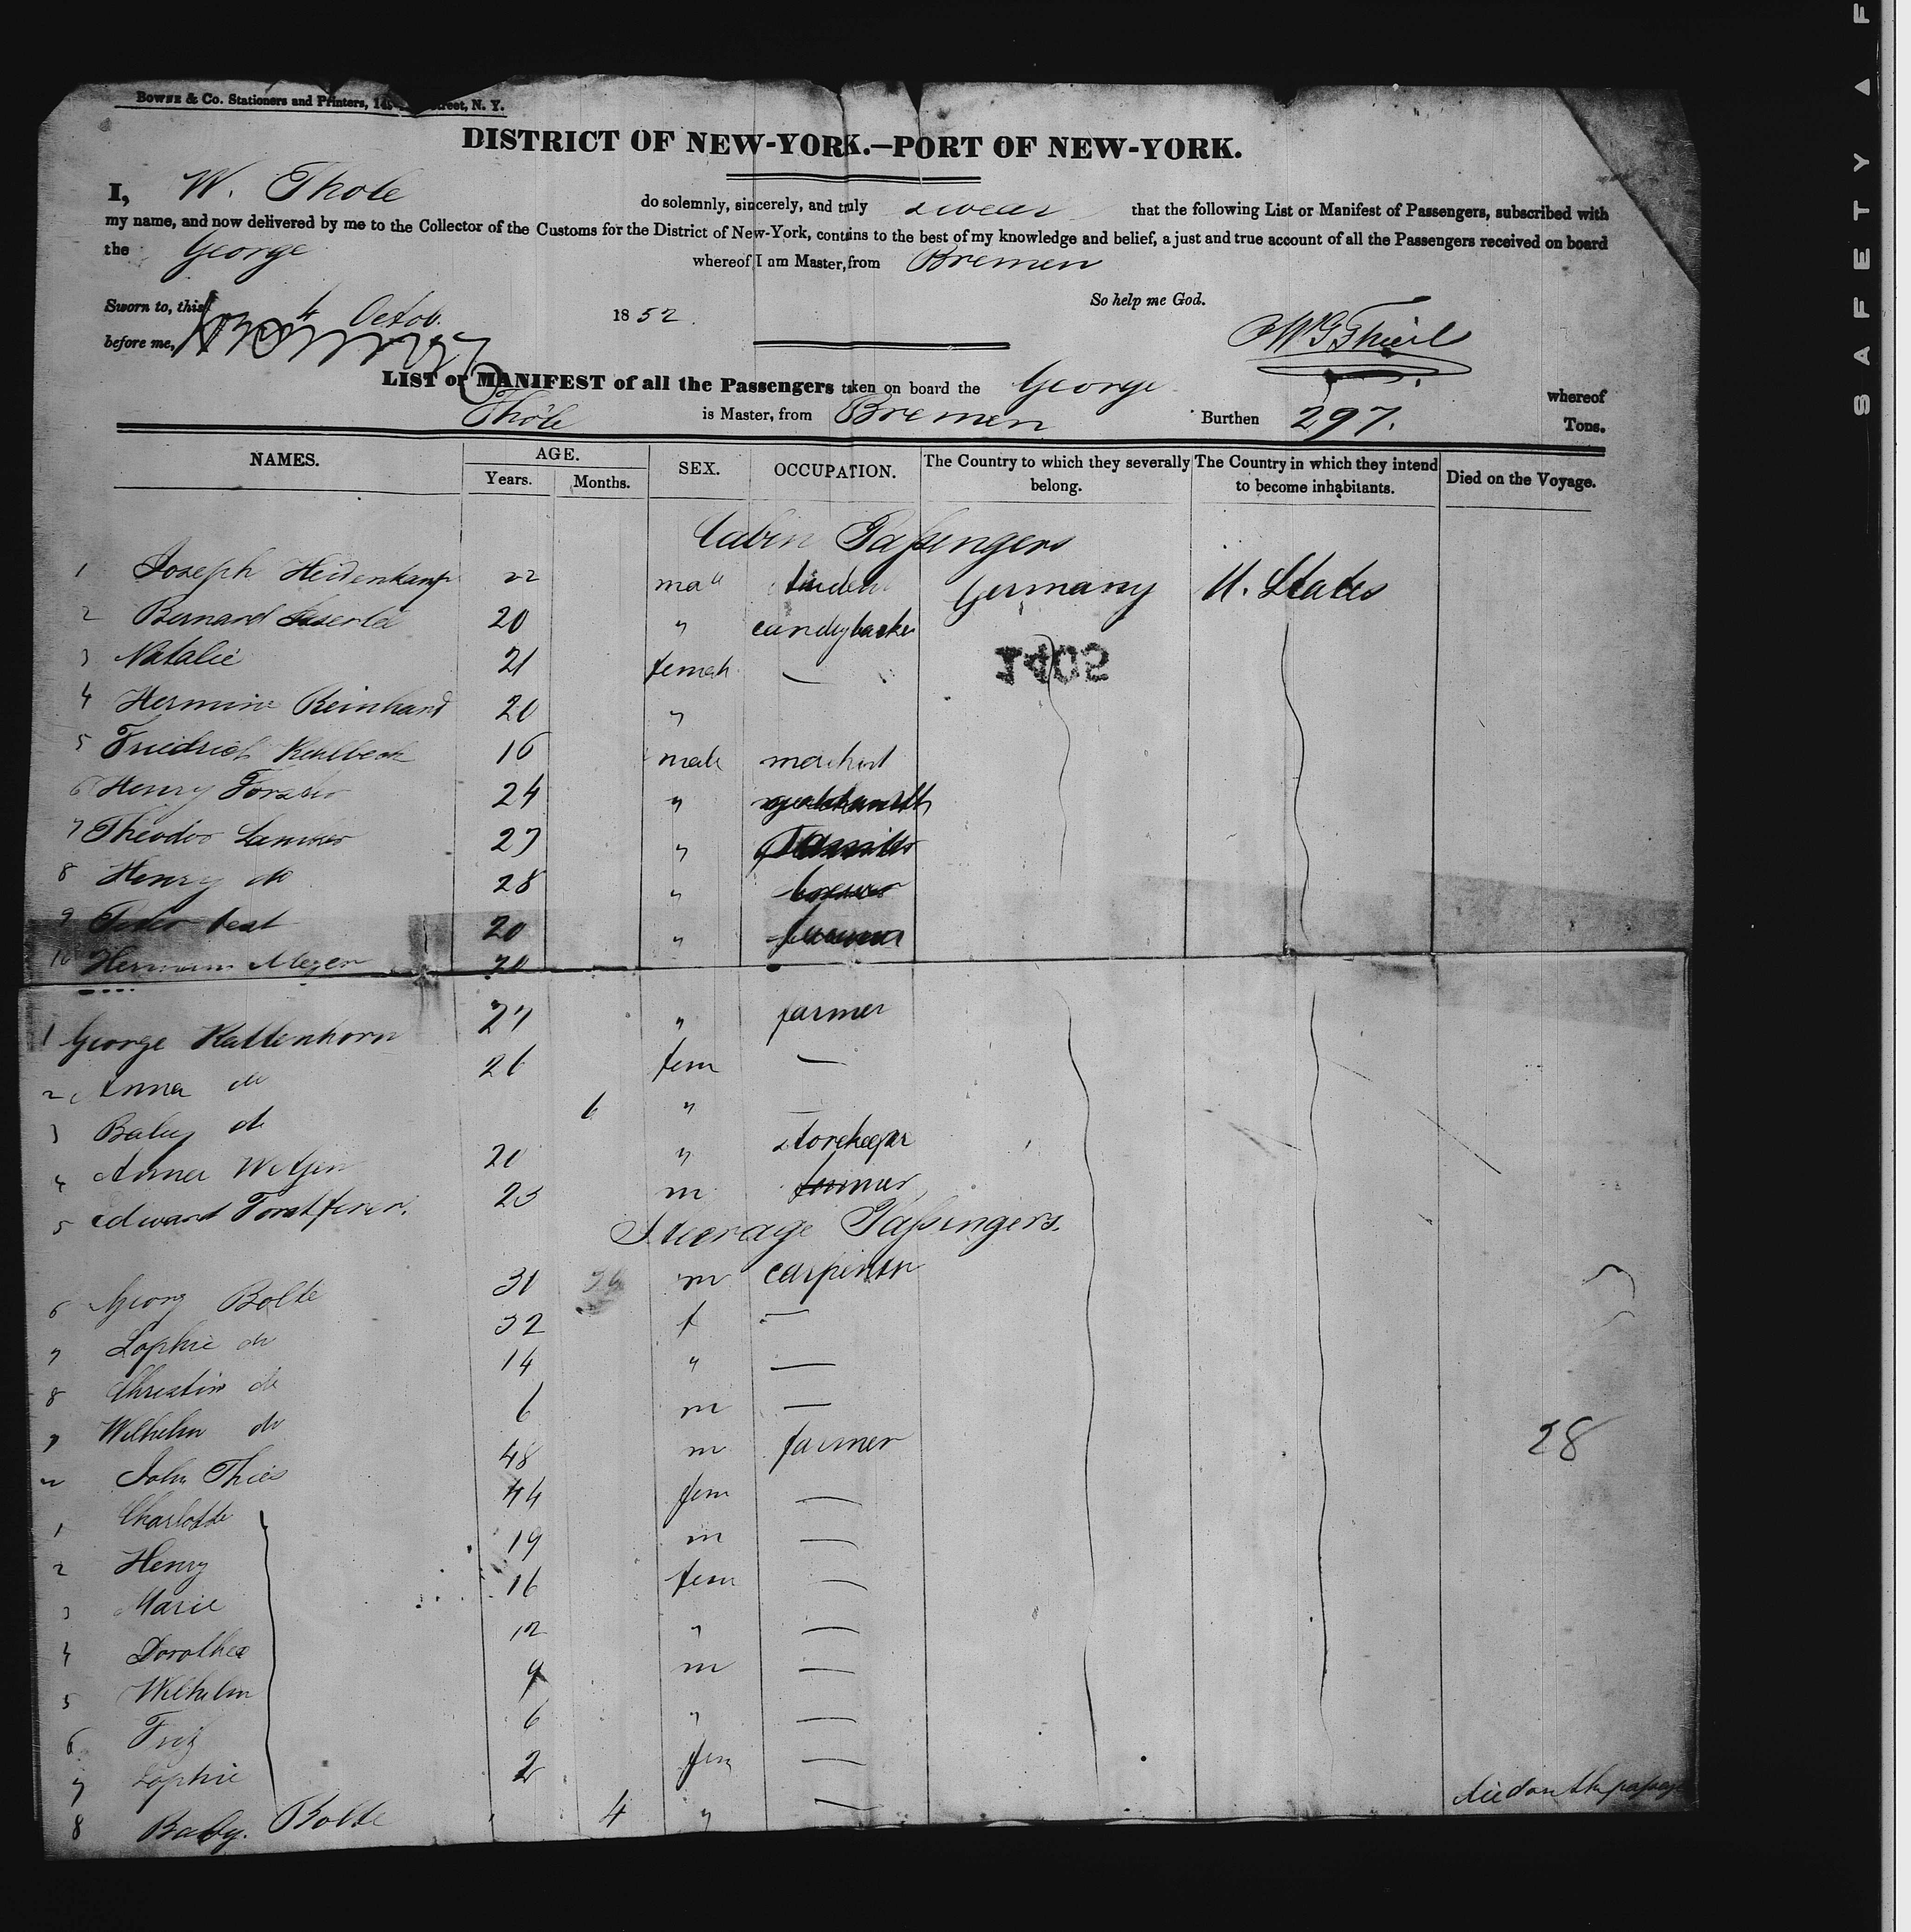 BOWNE & Co. Stationers and Printers, 149 Street, N. Y.
DISTRICT OF NEW-YORK.—PORT OF NEW-YORK.
I, W. Thole do solemnly, sincerely, and truly swear that the following List or Manifest of Passengers, subscribed with
my name, and now delivered by me to the Collector of the Customs for the District of New-York, contains to the best of my knowledge and belief, a just and true account of all the Passengers received on board
the George whereof I am Master, from Bremen
Sworn to, this 4 Octob. 1852. So help me God.
before me,
LIST or MANIFEST of all the Passengers taken on board the George whereof
Thole is Master, from Bremen Burthen 297. Tons.
NAMES. AGE. Years. Months. SEX. OCCUPATION. The Country to which they severally belong. The Country in which they intend to become inhabitants. Died on the Voyage.
Cabin Passengers
1 Joseph Heidenkamp 22 male student Germany U. States
2 Bernard 20 " candybacker
1405
3 Natalie 21 female —
4 Hermine Reinhard 20 "
5 Friedrich 16 male
6 Henry 24 "
7 Theodor 27 "
8 Henry do 28 "
9 20 "
10 Hermann Meyer 20
1 George Kattenhorn 27 " farmer
2 Anna do 26 fem —
3 Baby do 6 " —
4 Anna 20 " storekeeper
5 Edward 23 m farmer
Steerage Passengers.
6 Georg Bolte 31 m carpenter
7 Sophie do 32 f —
8 Christine do 14 " —
9 Wilhelm do 6 m —
John Thies 48 m farmer 28
1 Charlotte 44 fem —
2 Henry 19 m —
3 Marie 16 fem —
4 Dorothea 12 " —
5 Wilhelm 9 m —
6 Friz 6 " —
7 Sophie 2 fem —
8 Baby. Bolte 4 " — died on the passage
S A F E T Y ▲ F